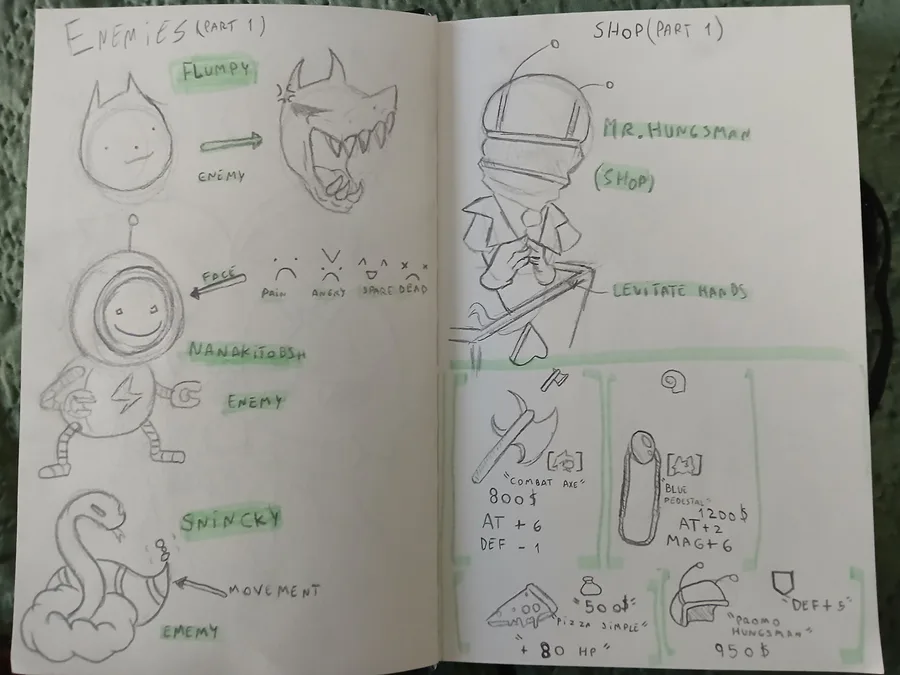 ENEMIES (PART 1)
FLUMPY
ENEMY
FACE
PAIN ANGRY SPARE DEAD
NANAKITOBSH
ENEMY
SNINCKY
MOVEMENT
EMEMY
SHOP (PART 1)
MR. HUNGSMAN
(SHOP)
LEVITATE HANDS
"COMBAT AXE"
800$
AT + 6
DEF - 1
"BLUE
PEDESTAL"
1200$
AT + 2
MAG + 6
"500$"
"PIZZA SIMPLE"
+ 80 HP
"DEF + 5"
"PROMO
HUNGSMAN"
950$